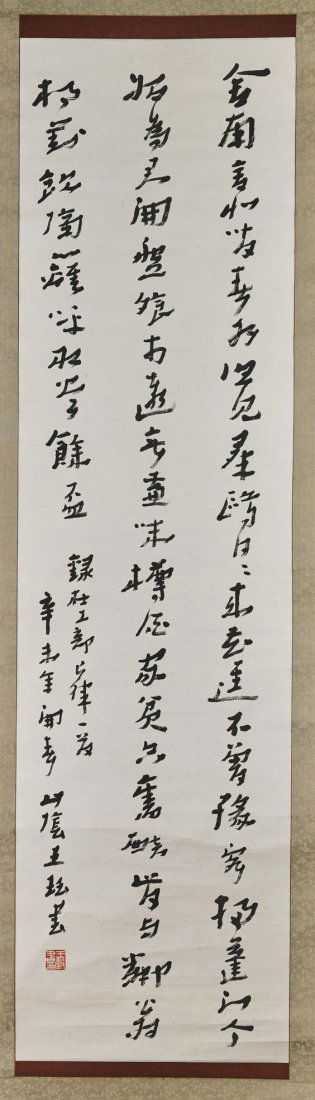 舍南舍北皆春水但見羣鷗日〻來花逕不曾緣客掃蓬門今
始為君開盤飧市遠無兼味樽酒家貧只舊醅肯与鄰翁
相對飲隔籬呼取盡餘盃
錄杜工部七律一首
辛未年開春 山陰王書